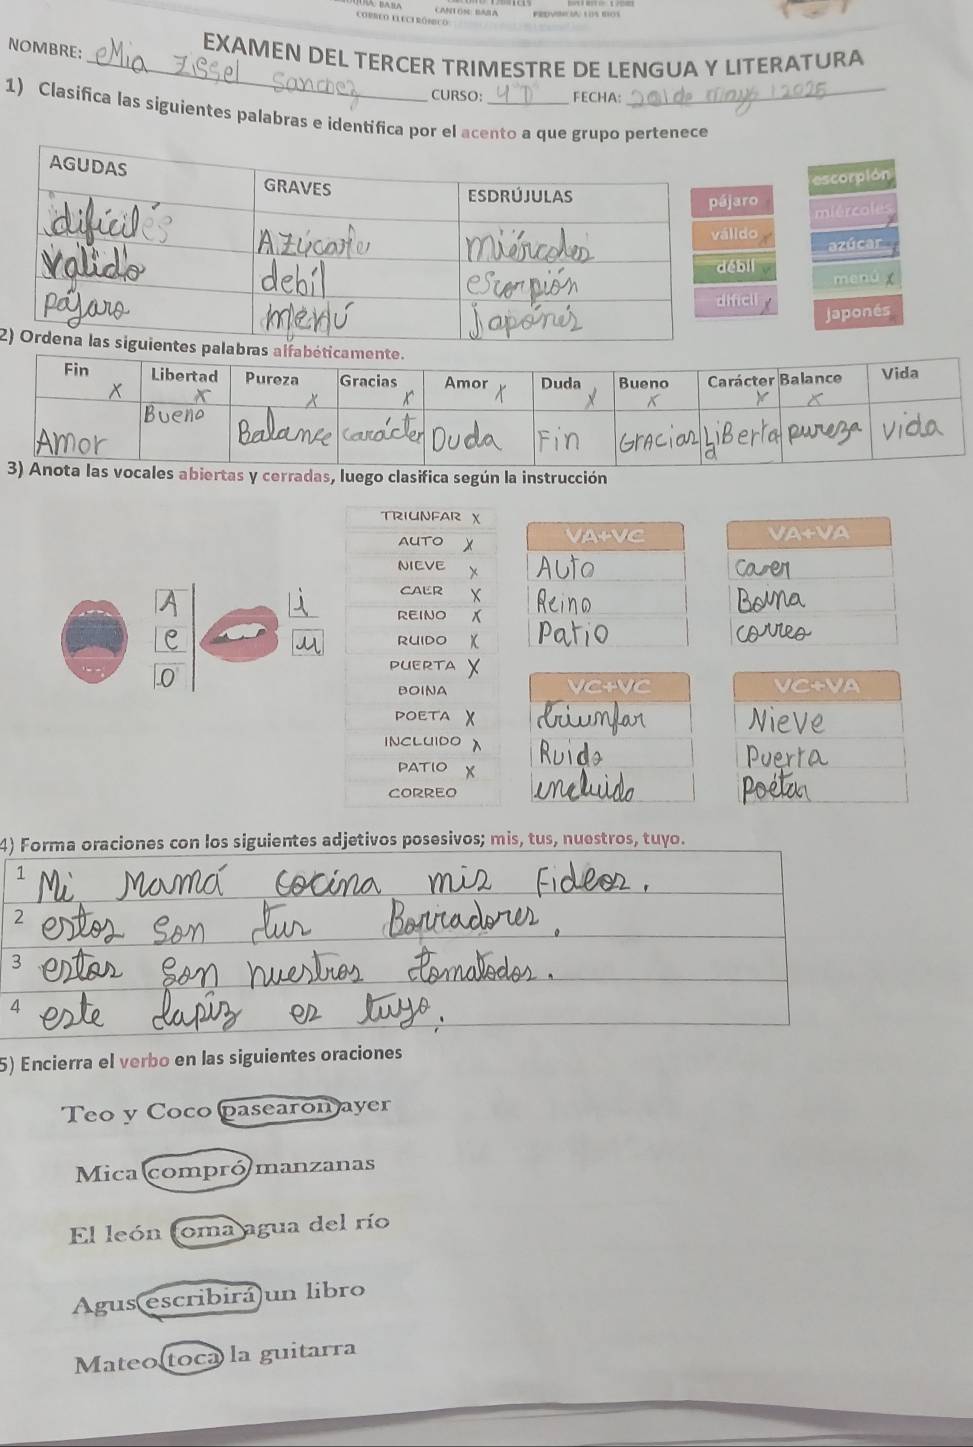 CANTÓN: BABA
CORREO ELECTRÓNICO:
EXAMEN DEL TERCER TRIMESTRE DE LENGUA Y LITERATURA
NOMBRE: eMia Zissel Sanchez CURSO: 4º D FECHA: 20 de mayo 2025
1) Clasifica las siguientes palabras e identifica por el acento a que grupo pertenece
AGUDAS GRAVES ESDRÚJULAS
dificiles Azúcar miércoles
valido debíl escorpión
pájaro menú japonés
pájaro escorpión
válido miércoles
débil azúcar
difícil menú
japonés
2) Ordena las siguientes palabras alfabéticamente.
Fin Libertad Pureza Gracias Amor Duda Bueno Carácter Balance Vida
Amor Bueno Balance carácter Duda Fin Gracias LiBertad pureza vida
3) Anota las vocales abiertas y cerradas, luego clasifica según la instrucción
A e o
i u
TRIUNFAR X
AUTO X
NIEVE X
CAER X
REINO X
RUIDO X
PUERTA X
BOINA
POETA X
INCLUIDO X
PATIO X
CORREO
VA+VC VA+VA
Auto caer
Reino Boina
Patio correo
VC+VC VC+VA
triunfar Nieve
Ruido Puerta
incluido Poeta
4) Forma oraciones con los siguientes adjetivos posesivos; mis, tus, nuestros, tuyo.
1 Mi Mamá cocina mis Fideos.
2 estos son tus Borradores.
3 estos son nuestros tomatodos.
4 este lapiz es tuyo.
5) Encierra el verbo en las siguientes oraciones
Teo y Coco pasearon ayer
Mica compró manzanas
El león toma agua del río
Agus escribirá un libro
Mateo toca la guitarra